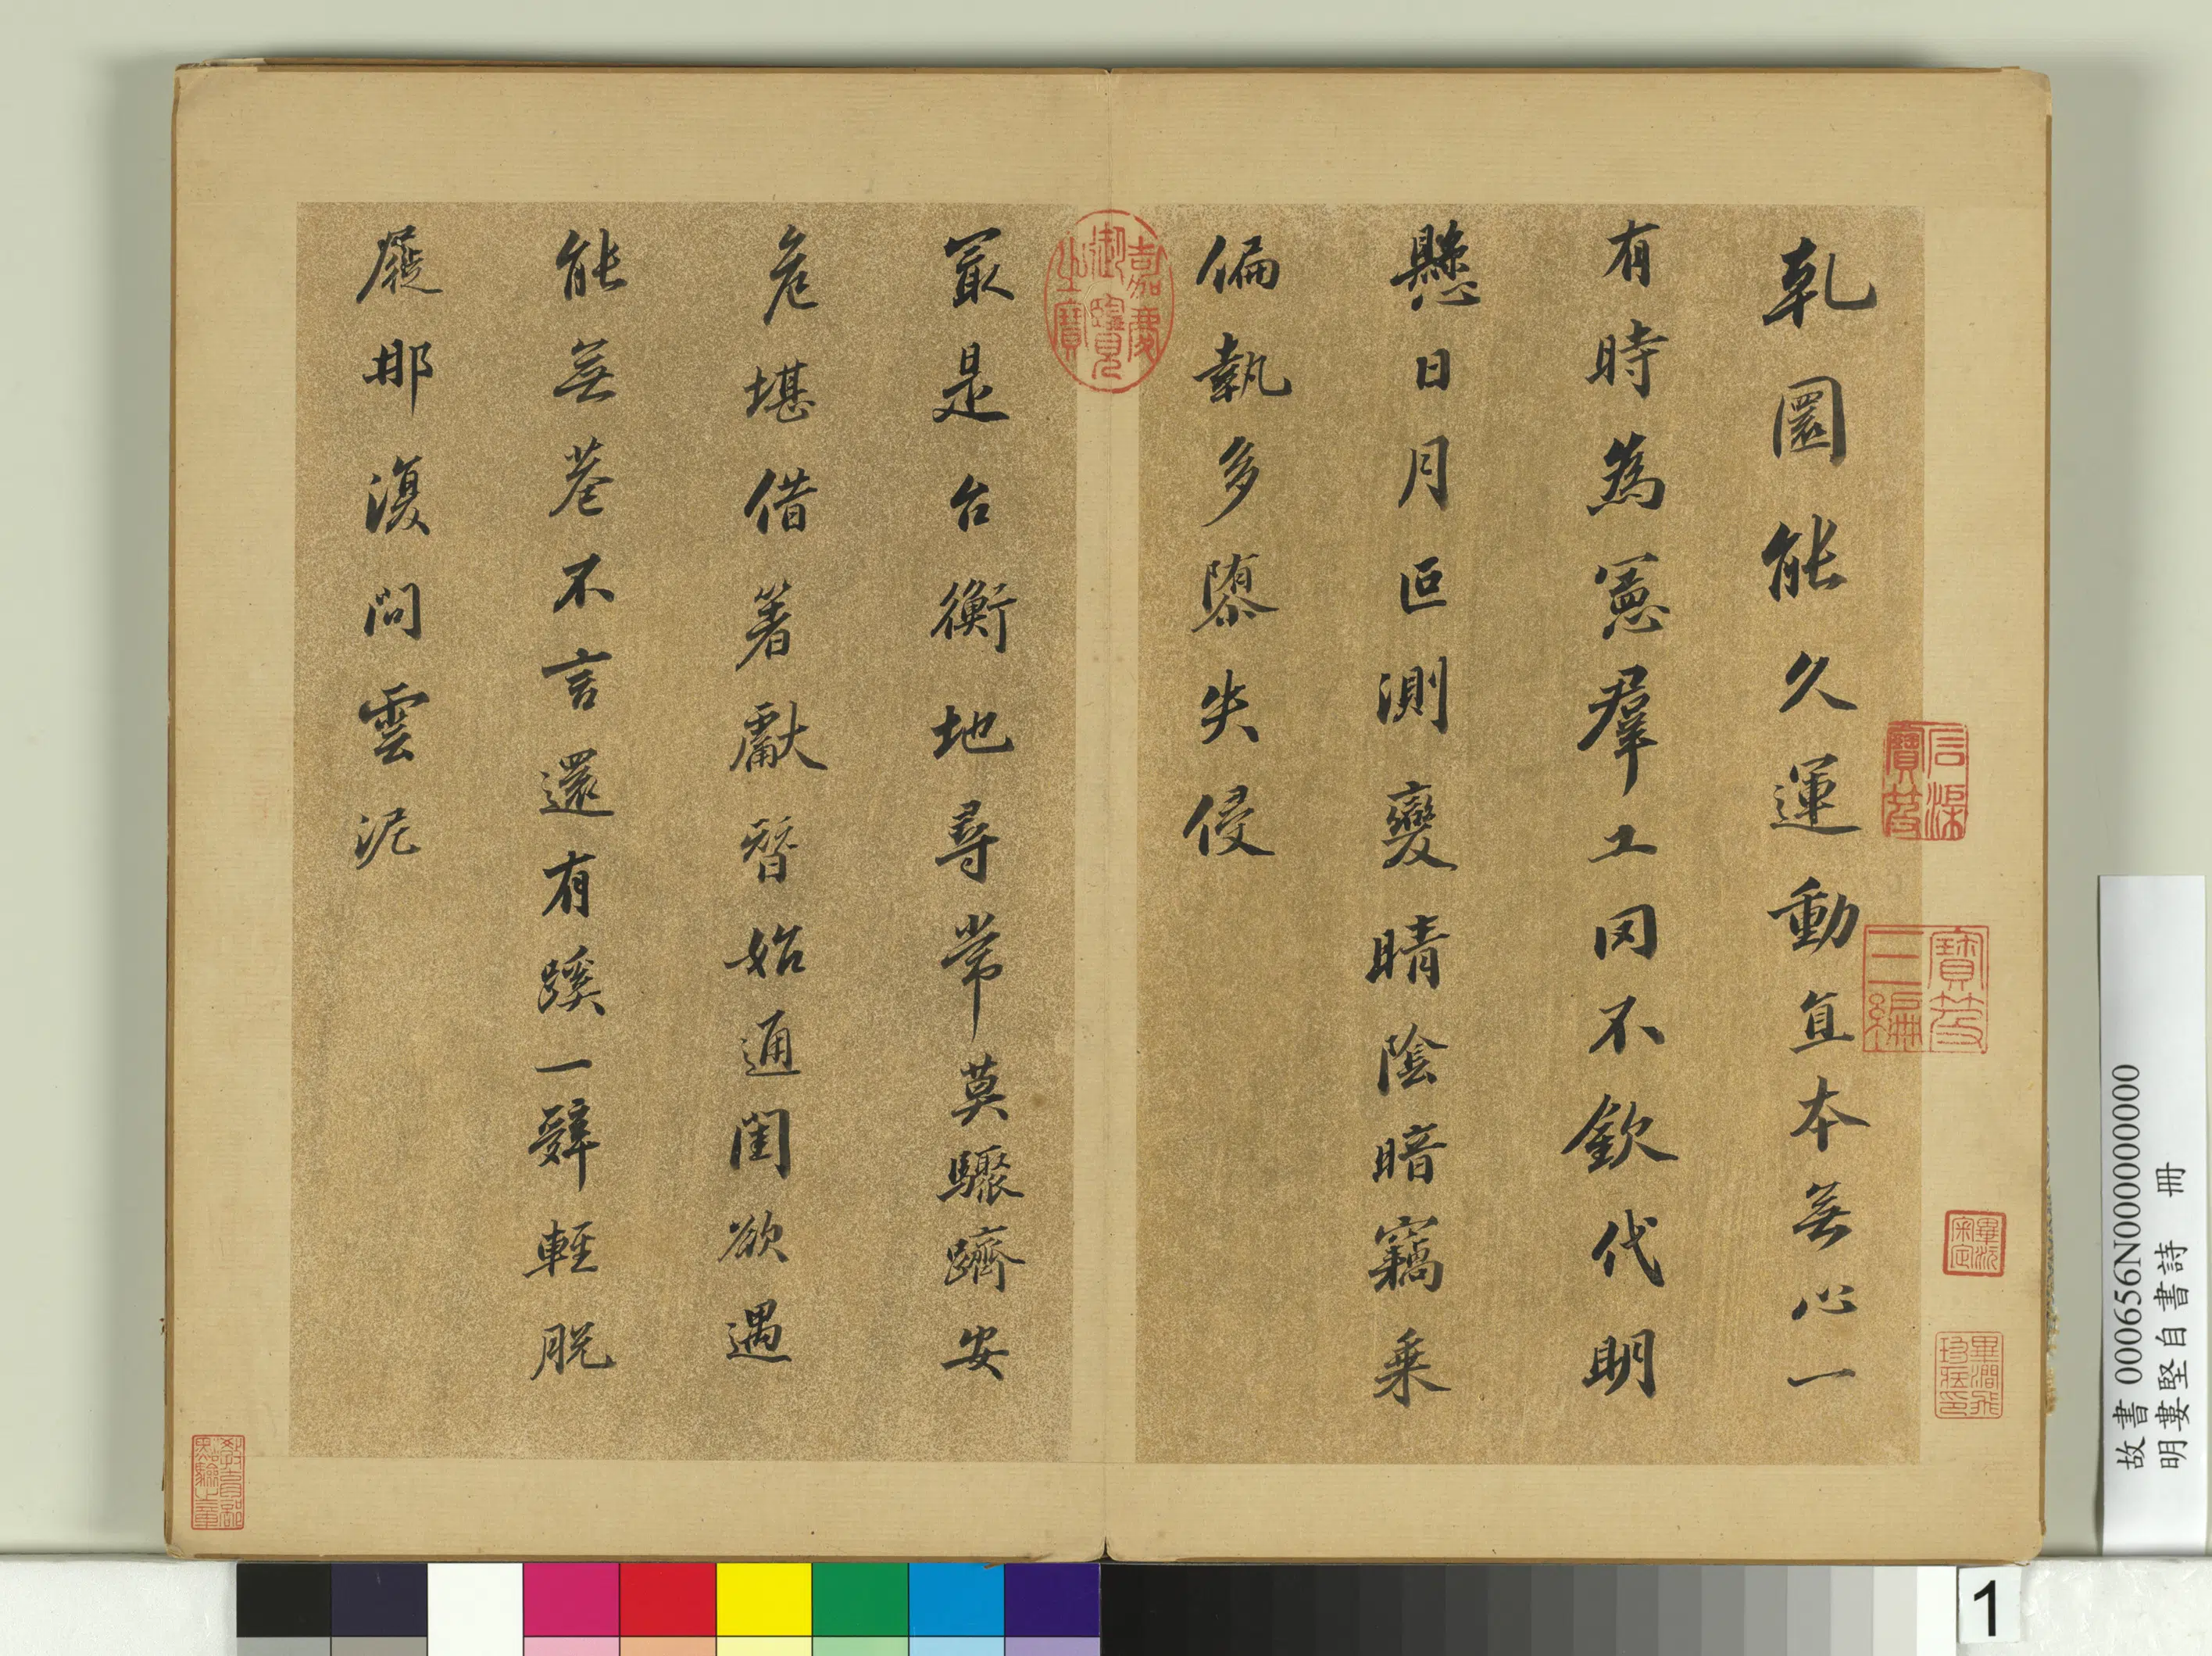 乹圜能久運動亙本無心一
有時為憲羣工罔不欽代明
懸日月叵測變晴陰暗竊乗
偏執多隳失侵
冣是台衡地尋常莫驟躋安
危堪借箸獻替始通閨欲遇
能無巷不言還有蹊一辤輕脫
屣那復問雲泥
嘉慶御覽之寶
石渠寶笈
寶笈三編
畢沅審定
故書 000656N000000000
明婁堅自書詩 冊
1